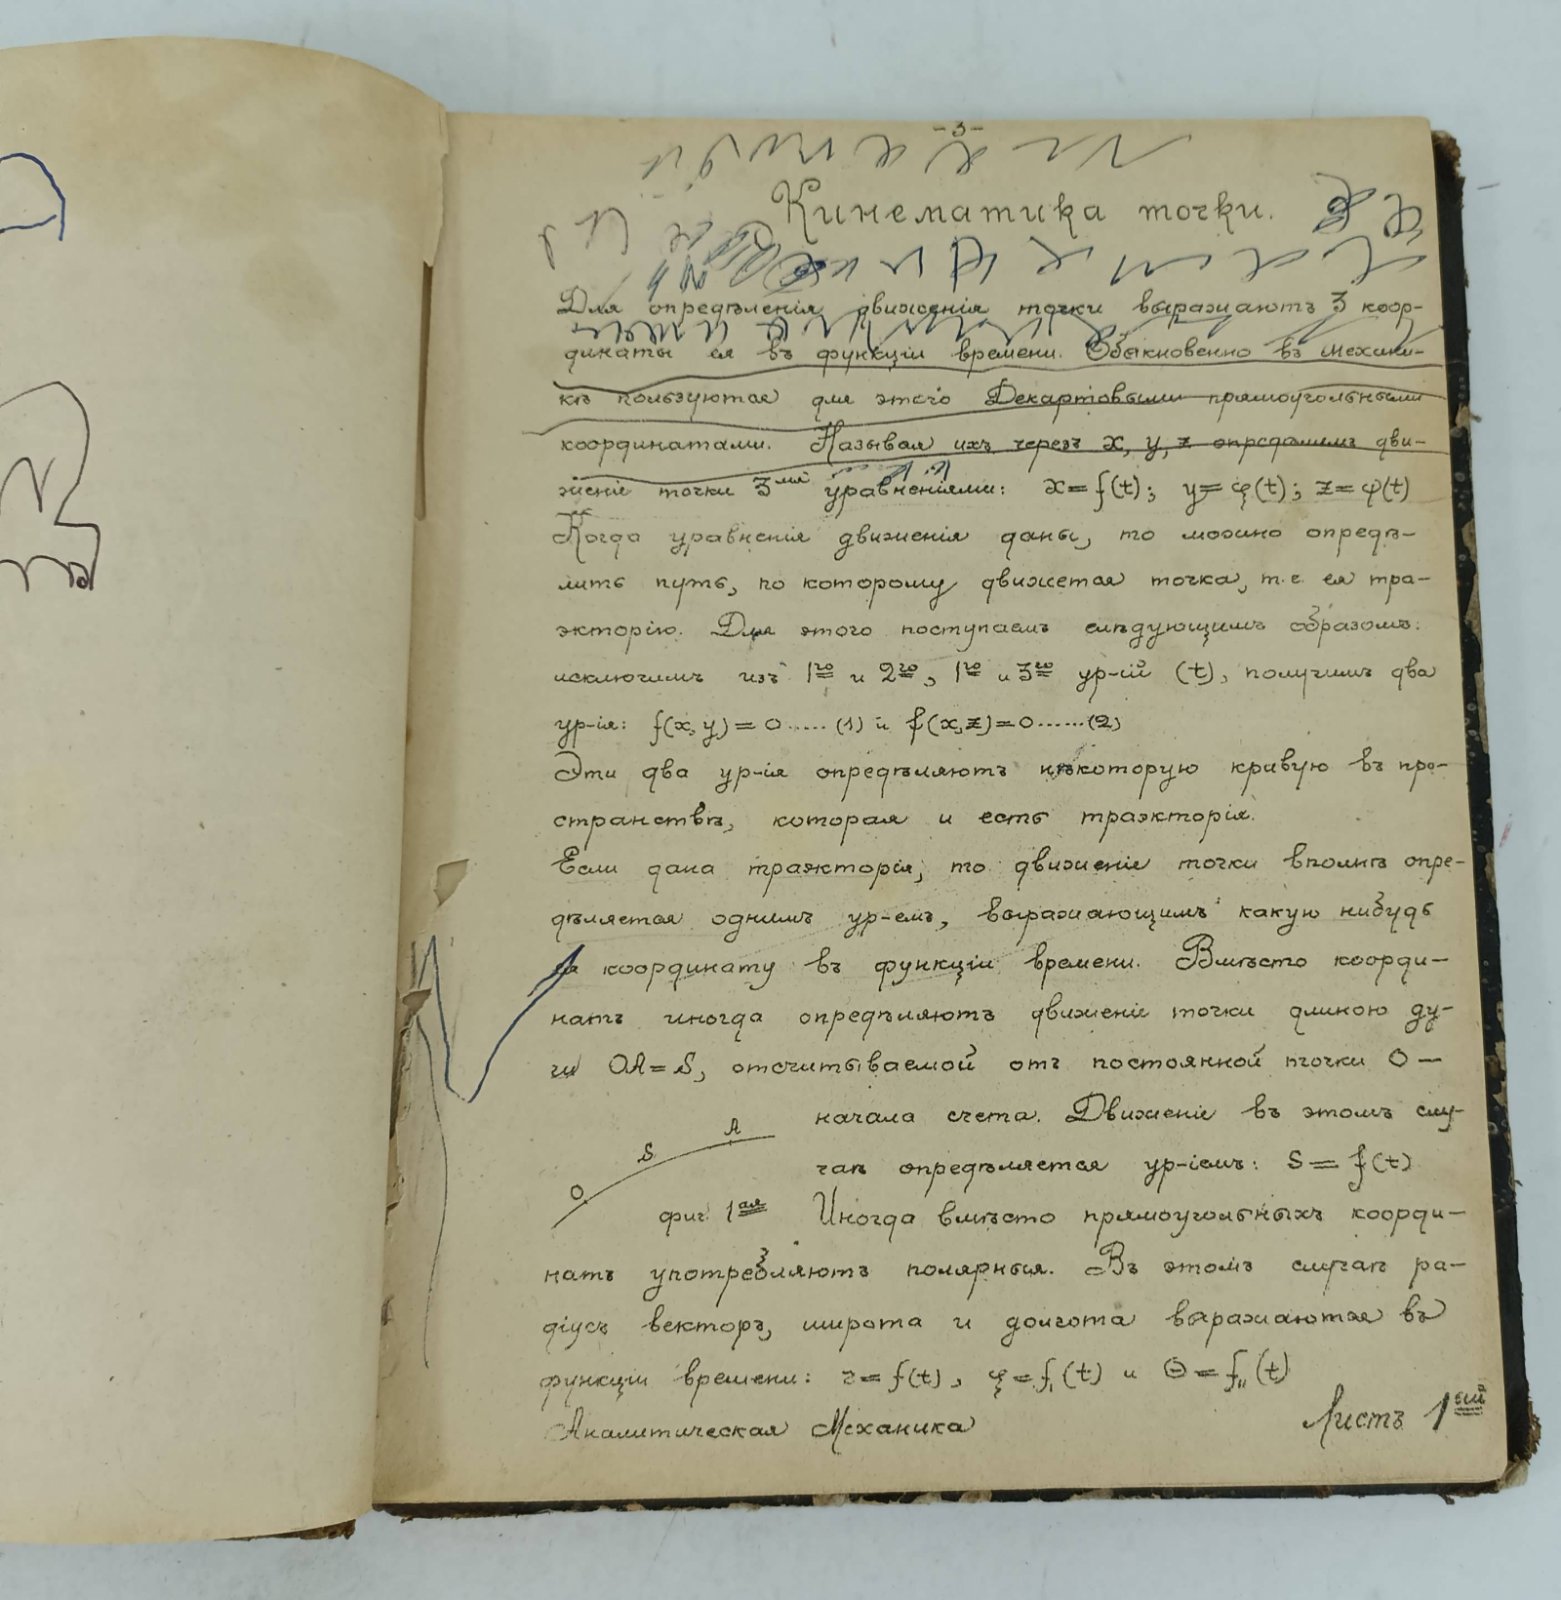 -3-
Кинематика точки.
Для опредѣленія движенія точки выражаютъ 3 коор-
динаты ея въ функціи времени. Обыкновенно въ механи-
кѣ пользуются для этого Декартовыми прямоугольными
координатами. Называя ихъ черезъ x, y, z опредѣлимъ дви-
женіе точки 3мя уравненіями: x=f(t); y=φ(t); z=ψ(t)
Когда уравненія движенія даны, то можно опредѣ-
лить путь, по которому движется точка, т.е. ея тра-
экторію. Для этого поступаемъ слѣдующимъ образомъ:
исключимъ изъ 1го и 2го, 1го и 3го ур-ій (t), получимъ два
ур-ія: f(x,y)=0......(1) и f(x,z)=0......(2)
Эти два ур-ія опредѣляютъ нѣкоторую кривую въ про-
странствѣ, которая и есть траэкторія.
Если дана траэкторія, то движеніе точки вполнѣ опре-
дѣляется однимъ ур-емъ, выражающимъ какую нибудь
ея координату въ функціи времени. Вмѣсто коорди-
натъ иногда опредѣляютъ движеніе точки длиною ду-
ги OA=S, отсчитываемой отъ постоянной точки O —
начала счета. Движеніе въ этомъ слу-
чаѣ опредѣляется ур-іемъ: S=f(t)
O S A
фиг. 1ая Иногда вмѣсто прямоугольныхъ коорди-
натъ употребляютъ полярныя. Въ этомъ случаѣ ра-
діусъ векторъ, широта и долгота выражаются въ
функціи времени: r=f(t), φ=f,(t) и Θ=f,,(t)
Аналитическая Механика Листъ 1ый